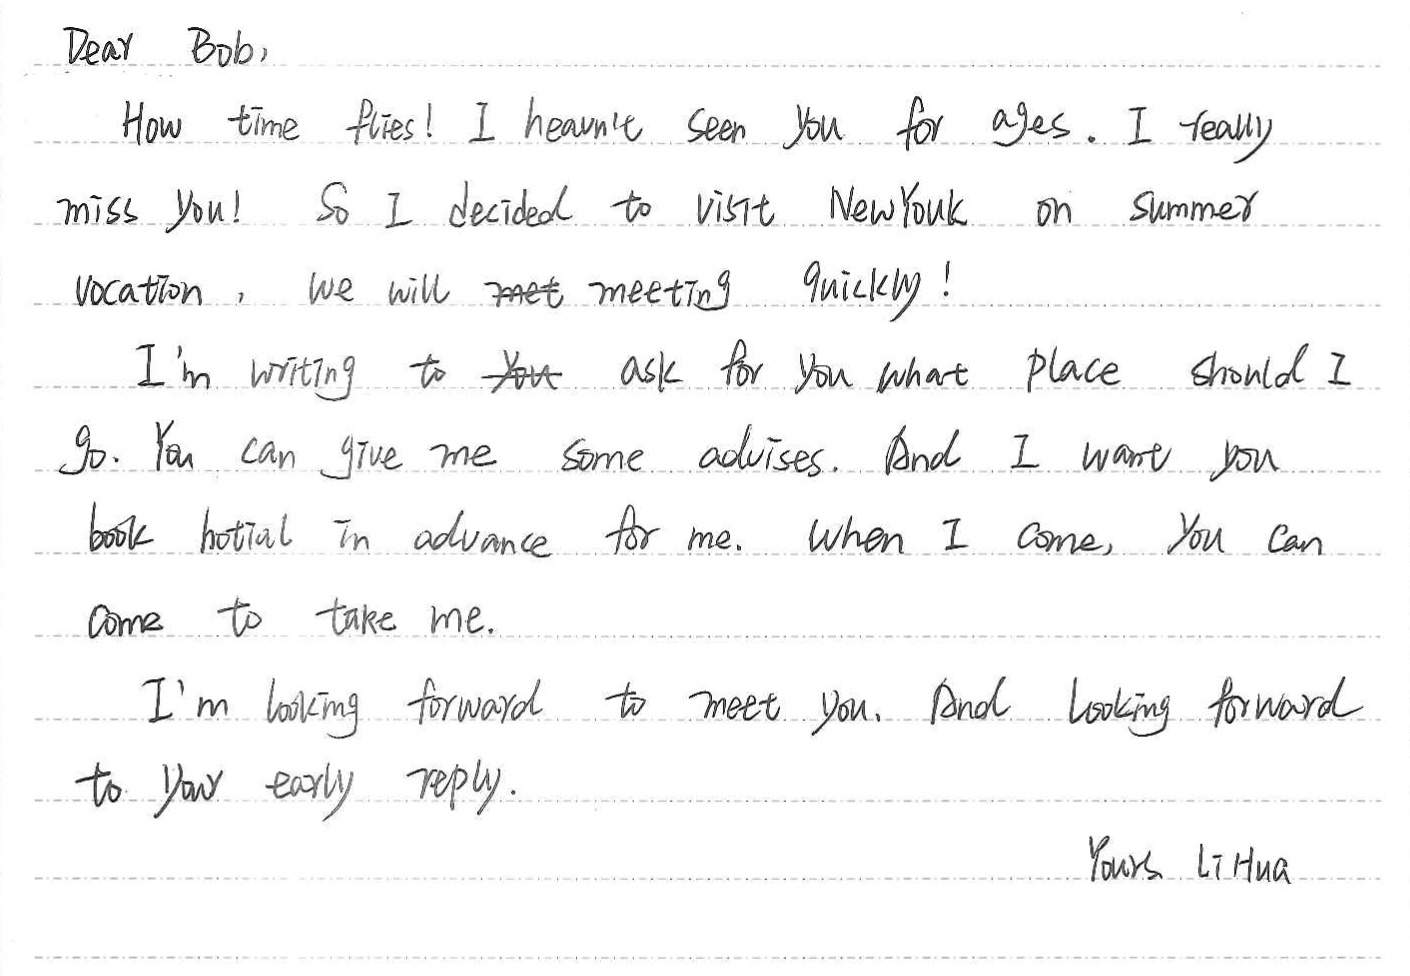 Dear Bob,
How time flies! I heavn't seen you for ages. I really
miss you! So I decided to visit NewYouk on summer
vocation, we will met meeting quickly!
I'm writing to you ask for you what place should I
go. You can give me some advises. And I want you
book hotial in advance for me. When I come, you can
come to take me.
I'm looking forward to meet you. And looking forward
to your early reply.
Yours Li Hua